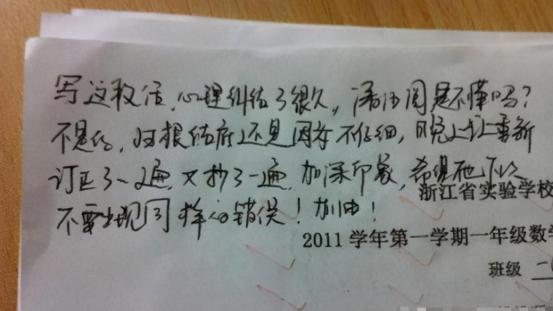 写这段话,心理纠结了很久,潘
不是的,归根结底还是因为不仔细,昨晚上让重新
订正了一遍,又抄了一遍,加深印象,希望他下次
不要出现同样的错误!加油!
浙江省实验学校
2011 学年第一学期一年级数学
班级